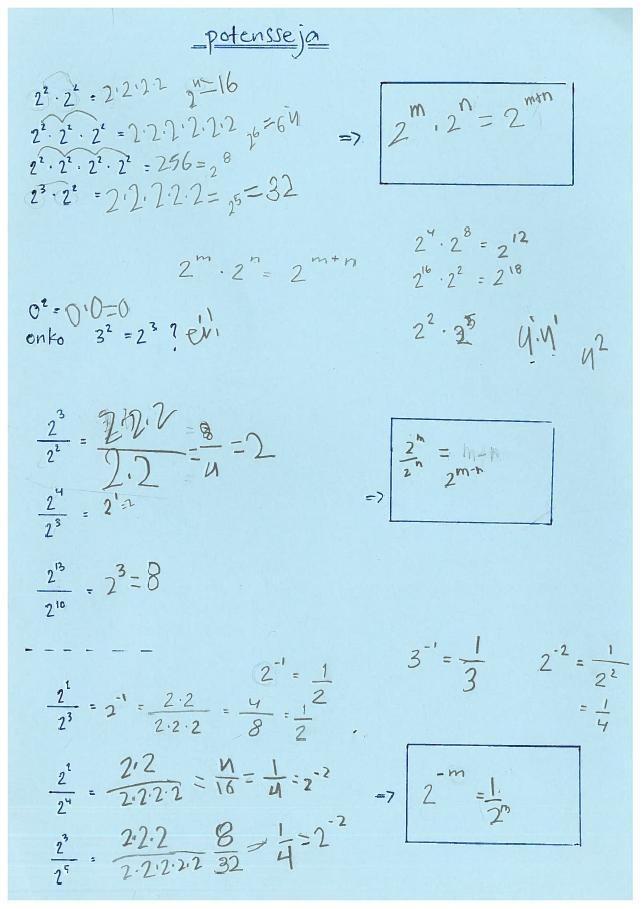 potensseja
2² · 2² = 2·2·2·2 2⁴=16
2² · 2² · 2² = 2·2·2·2·2·2 2⁶=64
2² · 2² · 2² · 2² = 256 = 2⁸
2³ · 2² = 2·2·2·2·2 = 2⁵ = 32
=> 2^m · 2^n = 2^(m+n)
2^m · 2^n = 2^(m+n)
2⁴ · 2⁸ = 2¹²
2¹⁶ · 2² = 2¹⁸
0² = 0·0=0
onko 3² = 2³ ? ei!
2² ·
4·4
4²
2³/2² = 2·2·2/2·2 = 8/4 = 2
2⁴/2³ = 2¹=2
=> 2^m/2^n = m-n
2^(m-n)
2¹³/2¹⁰ = 2³ = 8
- - - - - - -
2⁻¹ = 1/2
2²/2³ = 2⁻¹ = 2·2/2·2·2 = 4/8 = 1/2
3⁻¹ = 1/3
2⁻² = 1/2²
= 1/4
2²/2⁴ = 2·2/2·2·2·2 = 4/16 = 1/4 = 2⁻²
2³/2⁵ = 2·2·2/2·2·2·2·2 8/32 = 1/4 = 2⁻²
=> 2^(-m) = 1/2^m